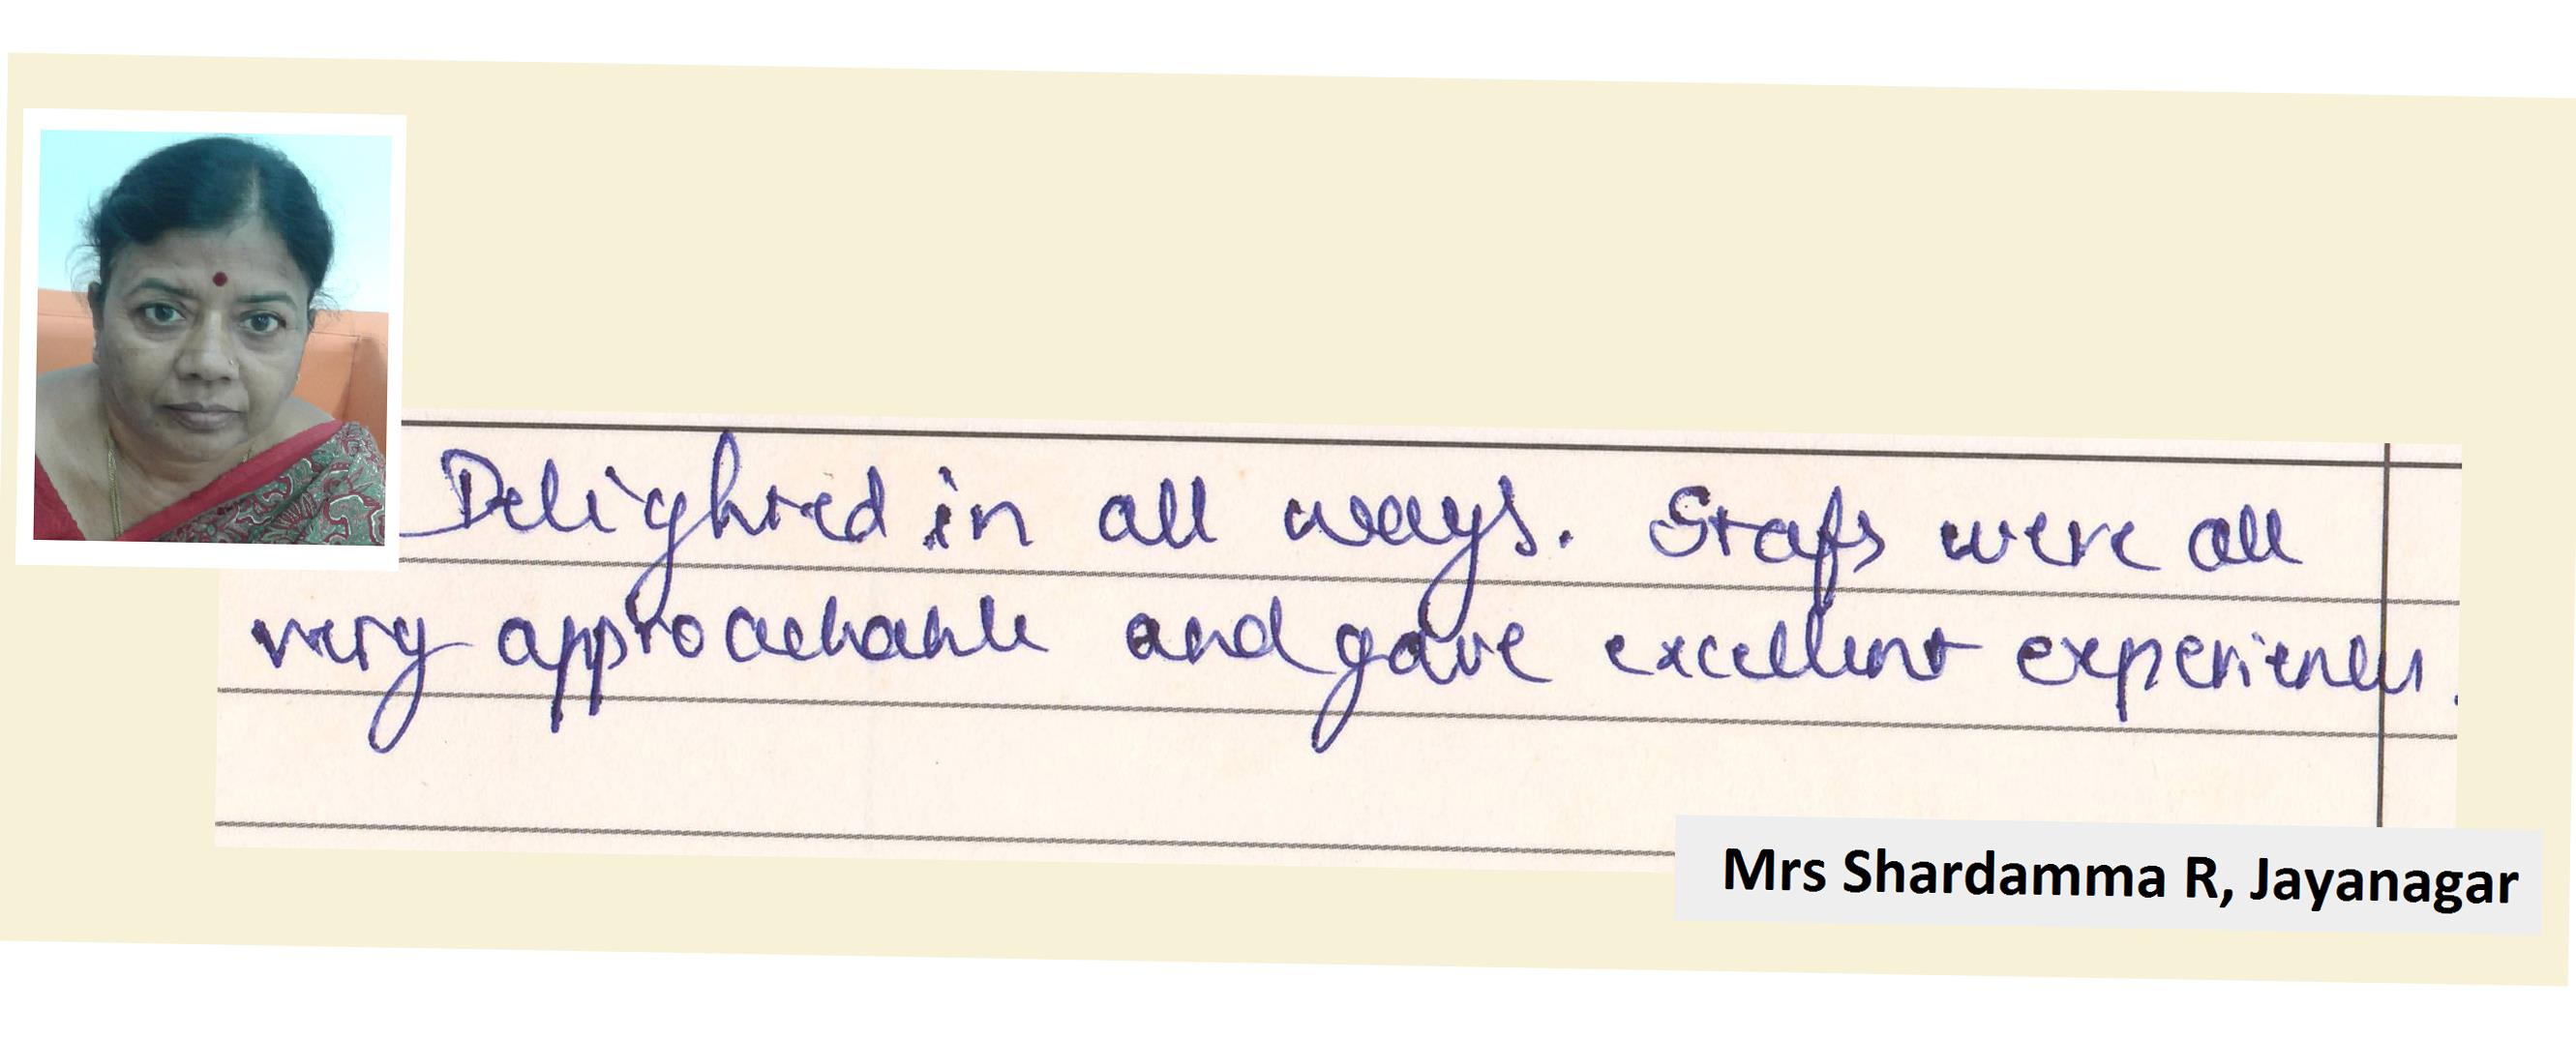 Delighted in all ways. Stafs were all
very approachable and gave excellent experiences.
Mrs Shardamma R, Jayanagar